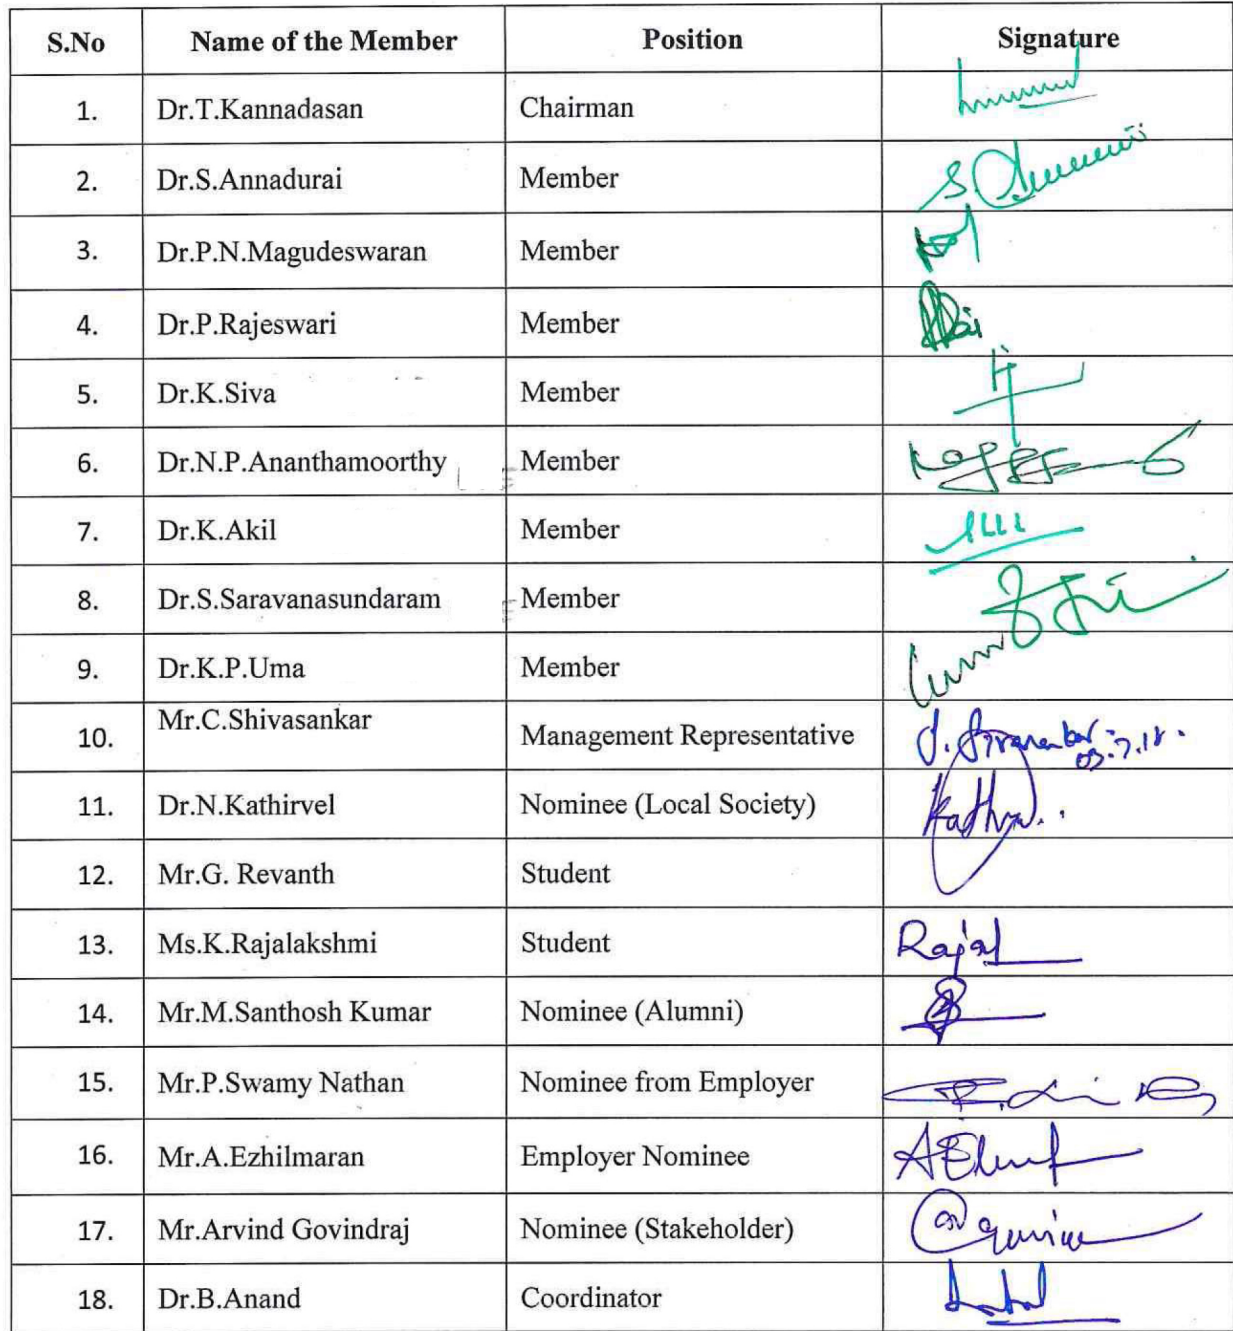 S.No Name of the Member Position Signature
1. Dr.T.Kannadasan Chairman
2. Dr.S.Annadurai Member S.
3. Dr.P.N.Magudeswaran Member
4. Dr.P.Rajeswari Member
5. Dr.K.Siva Member
6. Dr.N.P.Ananthamoorthy Member
7. Dr.K.Akil Member
8. Dr.S.Saravanasundaram Member
9. Dr.K.P.Uma Member
10. Mr.C.Shivasankar Management Representative
11. Dr.N.Kathirvel Nominee (Local Society)
12. Mr.G. Revanth Student
13. Ms.K.Rajalakshmi Student
14. Mr.M.Santhosh Kumar Nominee (Alumni)
15. Mr.P.Swamy Nathan Nominee from Employer
16. Mr.A.Ezhilmaran Employer Nominee
17. Mr.Arvind Govindraj Nominee (Stakeholder)
18. Dr.B.Anand Coordinator